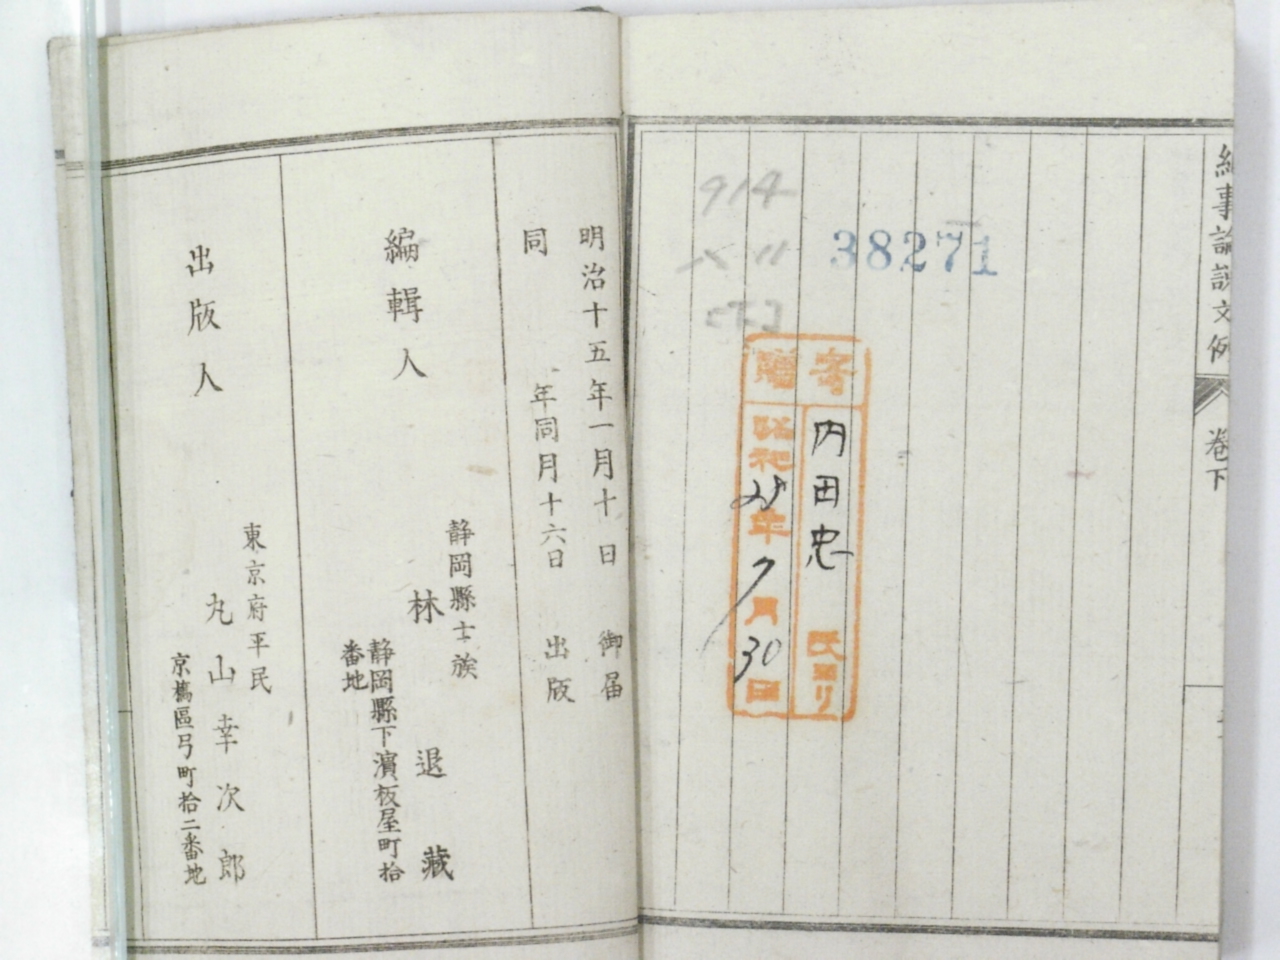 紀事論説文例
卷下
38271
914
寄贈
内田忠 氏ヨリ
昭和25年9月30日
明治十五年一月十日 御届
同 年同月十六日 出版
編輯人
静岡縣士族
林 退藏
静岡縣下濱板屋町拾
番地
出版人
東京府平民
丸山幸次郎
京橋區弓町拾二番地